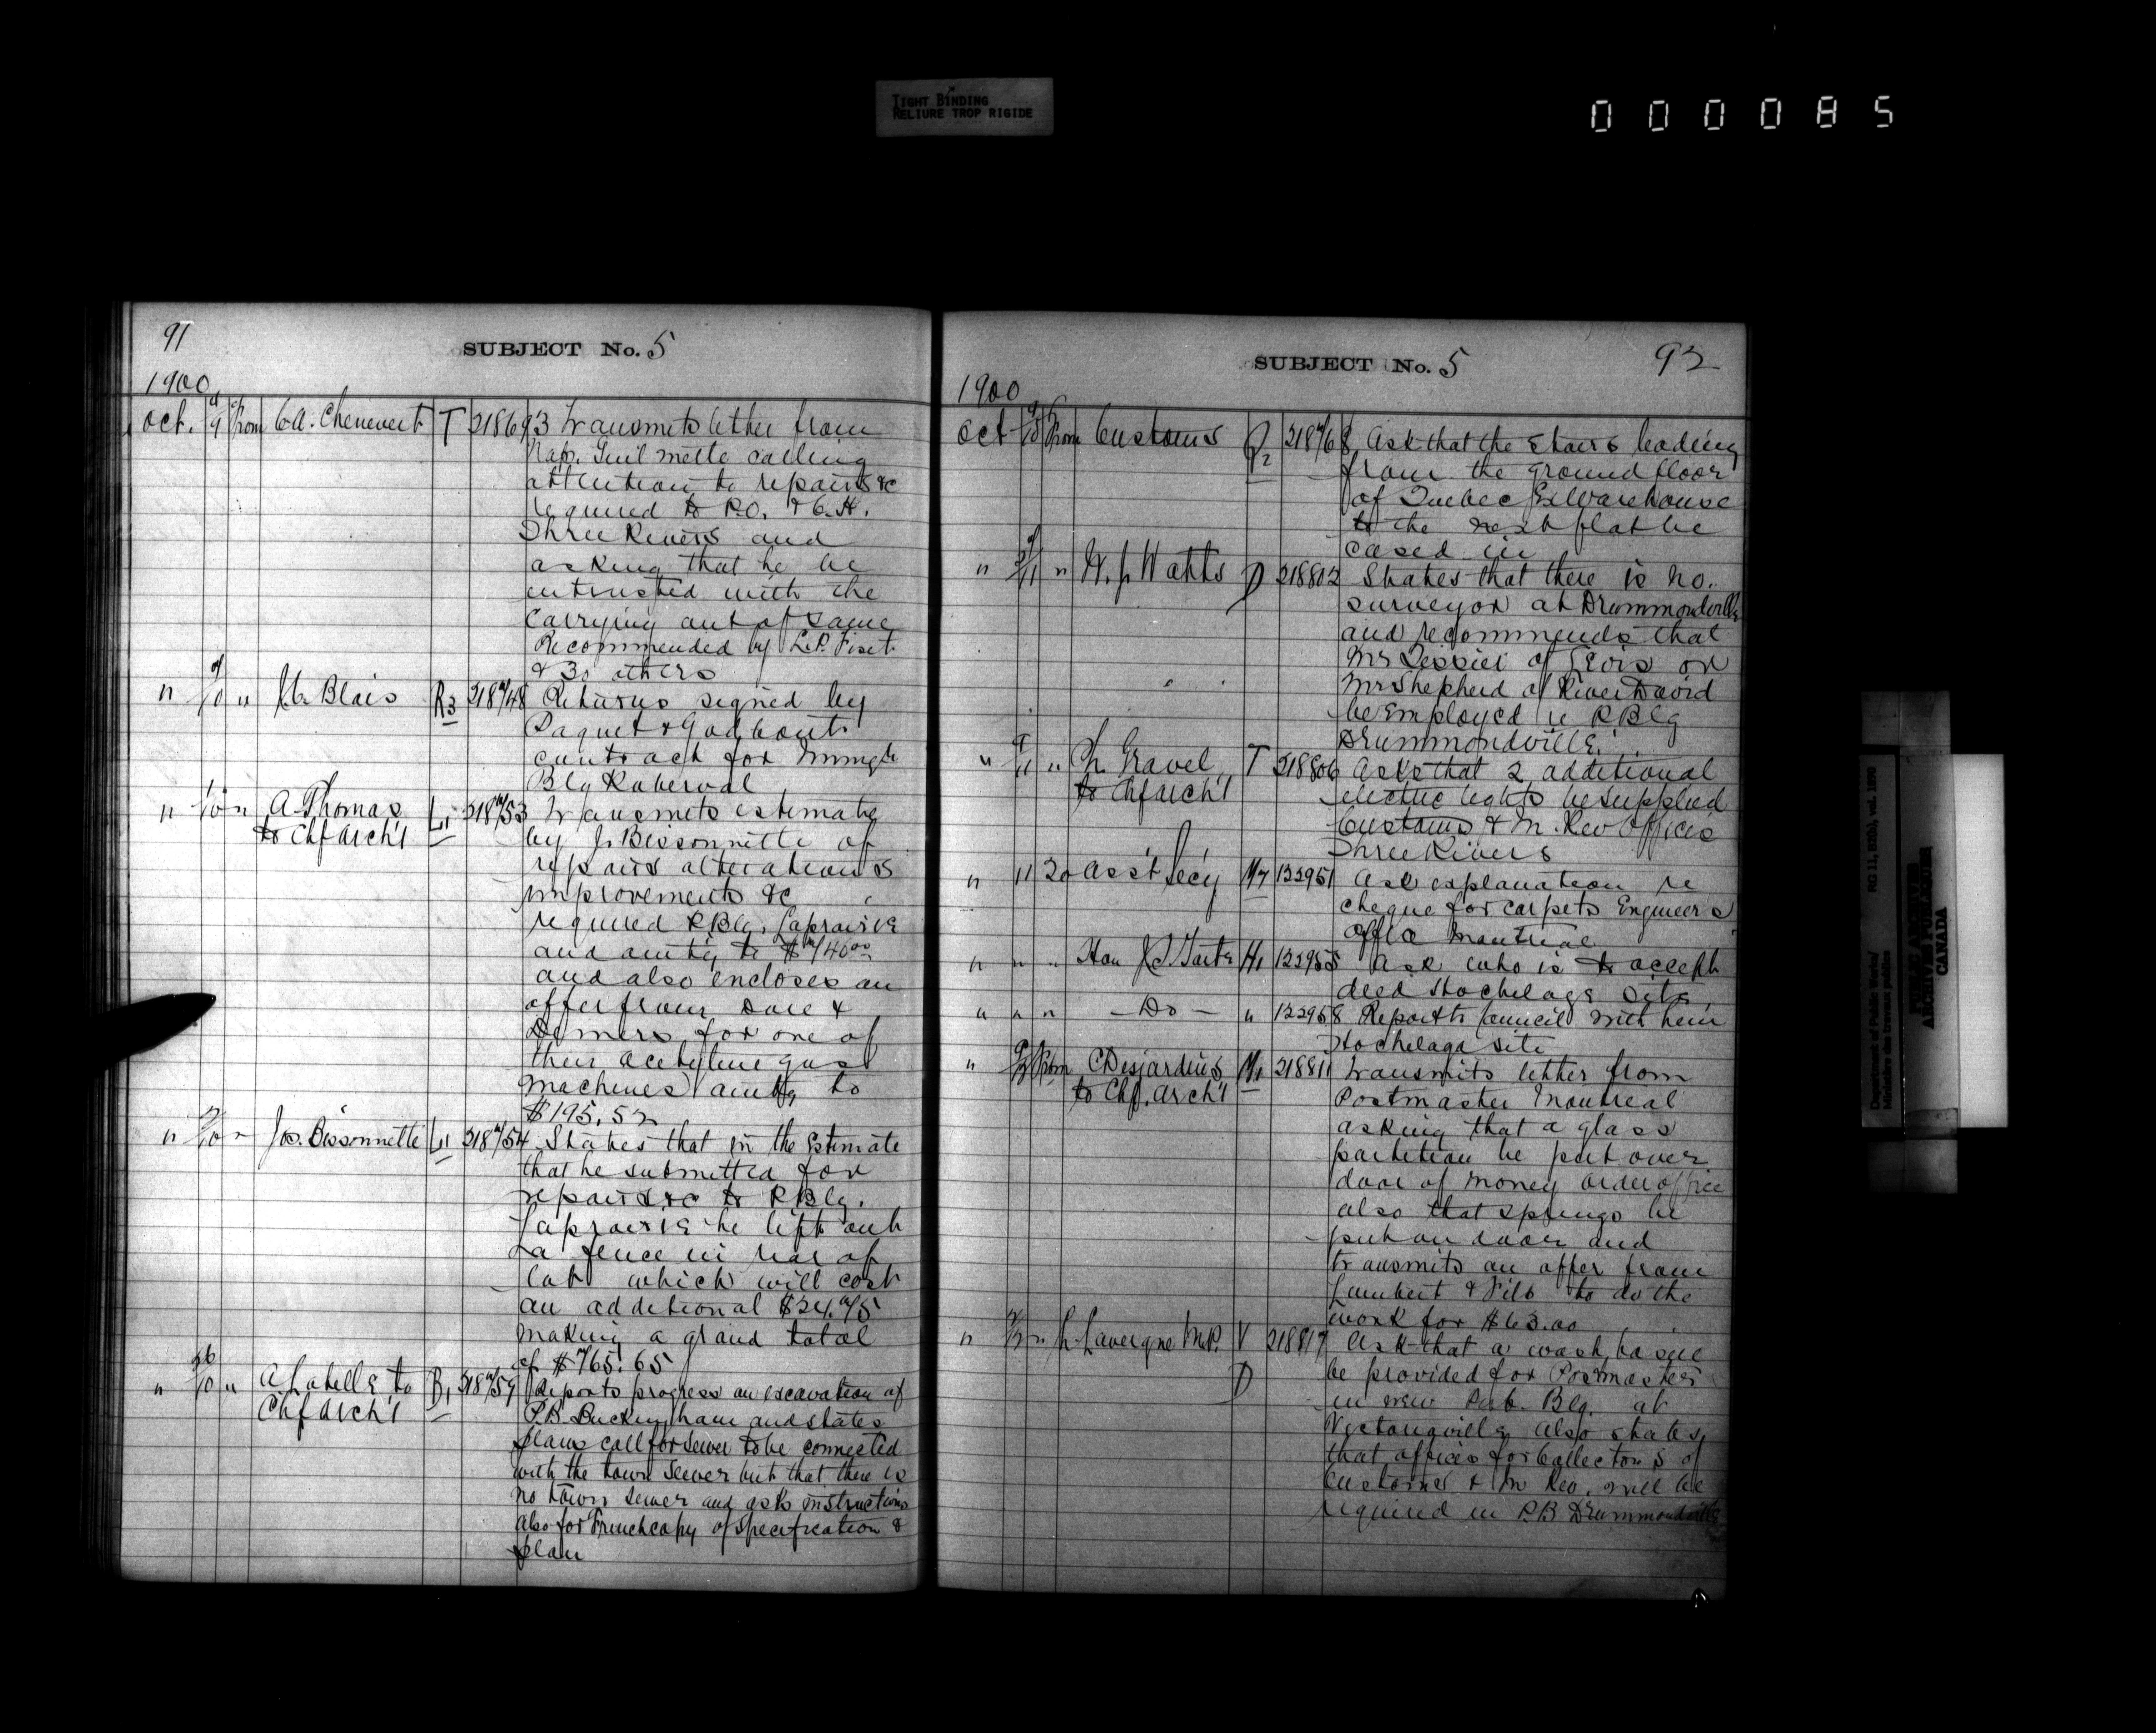 TIGHT BINDING
RELIURE TROP RIGIDE
000085
91
SUBJECT No. 5
1900
Oct. 9 From C.A. Chenevert T 218693 Transmits letter from
Nap. Guilmette calling
attention to repairs &c
required to P.O. & C.H.
Three Rivers and
asking that he be
entrusted with the
carrying out of same
Recommended by L.P. Fiset
& 30 others
" 9/10 " Blais R3 218748 Returns signed by
Paquet & Godbout
contract for Immigt
Blg Roberval
" /10 " A. Thomas L11 218753 Transmits estimate
to Chf Arch't by J. Bissonnette of
repairs alterations
improvements &c
required P Blg. Laprairie
and amtg to $740.00
and also encloses an
offer from Dore &
Demers for one of
their acetylene gas
machines amtg to
$195.52
" /10 " Jos. Bissonnette L11 218754 States that in the estimate
that he submitted for
repairs &c to P Blg.
Laprairie he left out
a fence in rear of
lot which will cost
an additional $24.75
making a grand total
of $765.65
" 26/10 " A Labelle to B1 218759 Reports progress on excavation of
Chf Arch't P.B. Buckingham and states
plans call for sewer to be connected
with the town sewer but that there is
no town sewer and asks instructions
also for French copy of specification &
plan
SUBJECT No. 5
92
1900
Oct 9/10 From Customs Q2 218768 Ask that the stairs leading
from the ground floor
of Quebec Ex Warehouse
to the next flat be
cased in
" /11 " W. J. Watts D 218802 States that there is no
surveyor at Drummondville
and recommends that
Mr Tessier of Levis or
Mr Shepherd of River David
be employed re P Blg
Drummondville.
" 9/11 " Ph. Gravel T 218806 Asks that 2 additional
to Chf Arch't electric lights be supplied
Customs & In. Rev Offices
Three Rivers
" 11 To Ass't Secy M7 122951 Ask explanation re
cheque for carpets Engineers
Office Montreal
" " " Hon J.I. Tarte H1 122955 Ask who is to accept
deed Hochelaga Site,
" " " — Do — " 122958 Report to Council with him
Hochelaga site
" 9/12 From C Desjardins M1 218811 Transmits letter from
to Chf. Arch't Postmaster Montreal
asking that a glass
partition be put over
door of money order office
also that springs be
put on door and
transmits an offer from
Lambert & Fils to do the
work for $63.00
" /12 " L. Lavergne M.P. V 218817 Ask that a wash basin
D be provided for Postmasters
in new Pub. Blg. at
Victoriaville also states
that offices for Collectors of
Customs & In Rev. will be
required in P.B Drummondville
Department of Public Works/
Ministère des travaux publics
RG 11, B2(b), vol. 1890
PUBLIC ARCHIVES
ARCHIVES PUBLIQUES
CANADA